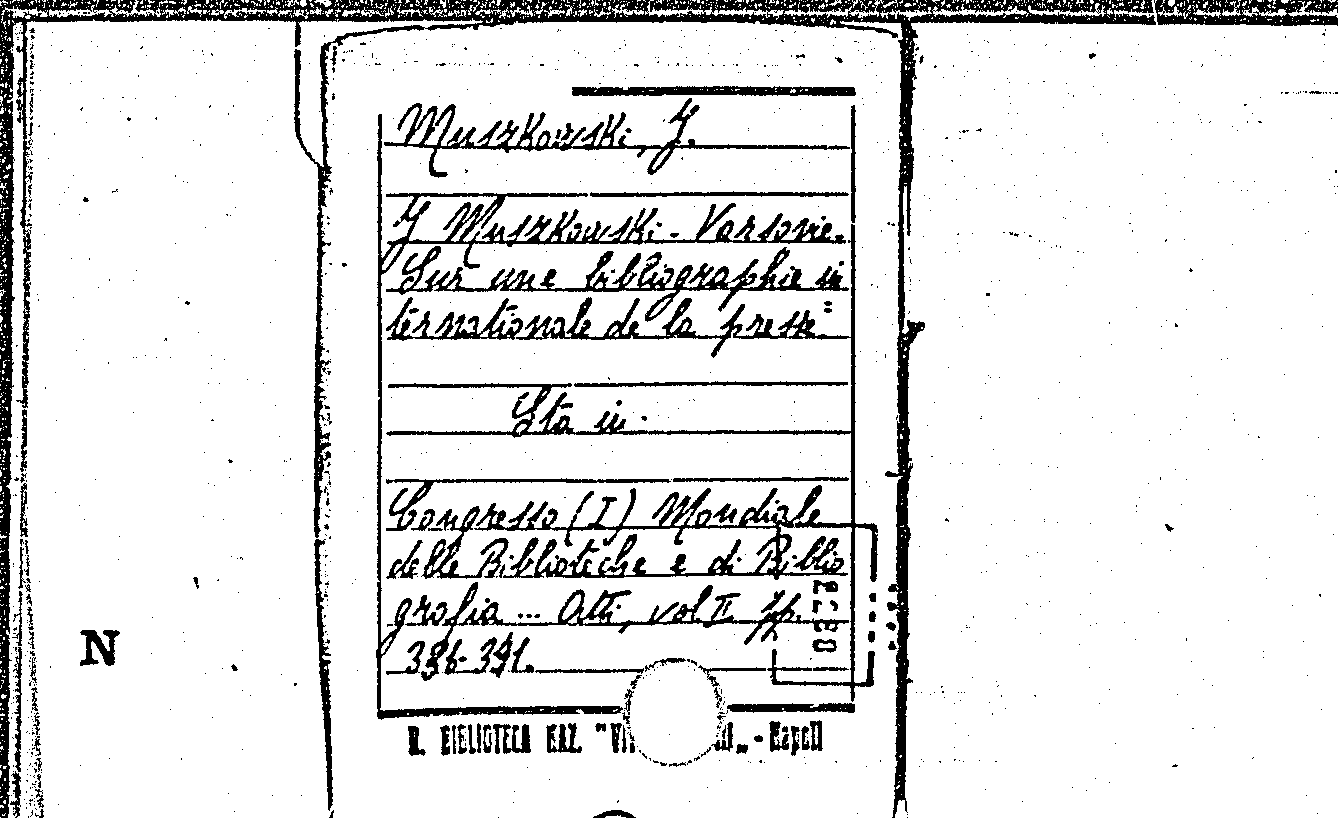 Muszkowski, J.
J. Muszkowski - Varsovie.
Sur une bibliographie in
ternationale de la presse:
Sta in:
Congresso (I) Mondiale
delle Biblioteche e di Biblio
grafia ... Atti, vol II pp.
386-391.
N
R. BIBLIOTECA NAZ. "VI III„ - Napoli